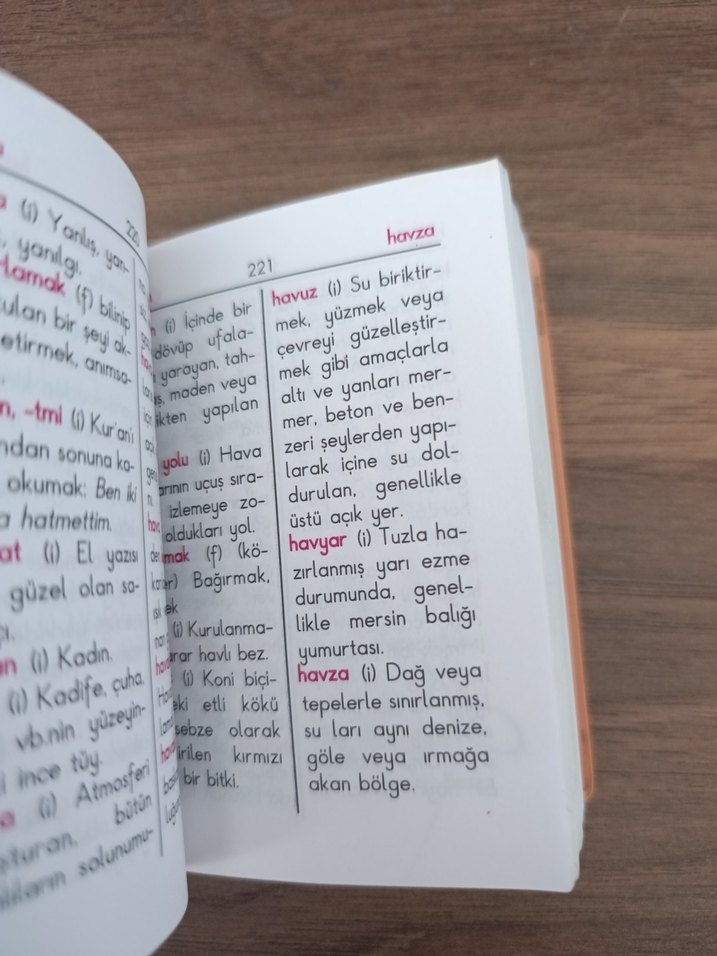 220
(i) Yanlış, yan-
yanılgı.
(f) bilinip
bir şeyi ak-
-tmi (i) Kur'an'ı
sonuna ka-
okumak: Ben iki
hatmettim.
(i) El yazısı
güzel olan sa-
(i) Kadın.
(i) Kadife, çuha,
vb.nin yüzeyin-
ince tüy.
(i) Atmosferi
bütün
solunumu-
221
havza
(i) İçinde bir
dövüp ufala-
yarayan, tah-
maden veya
yapılan
yolu (i) Hava
uçuş sıra-
izlemeye zo-
oldukları yol.
(f) (kö-
Bağırmak,
(i) Kurulanma-
havlı bez.
(i) Koni biçi-
etli kökü
sebze olarak
kırmızı
bir bitki.
havuz (i) Su biriktir-
mek, yüzmek veya
çevreyi güzelleştir-
mek gibi amaçlarla
altı ve yanları mer-
mer, beton ve ben-
zeri şeylerden yapı-
larak içine su dol-
durulan, genellikle
üstü açık yer.
havyar (i) Tuzla ha-
zırlanmış yarı ezme
durumunda, genel-
likle mersin balığı
yumurtası.
havza (i) Dağ veya
tepelerle sınırlanmış,
su ları aynı denize,
göle veya ırmağa
akan bölge.